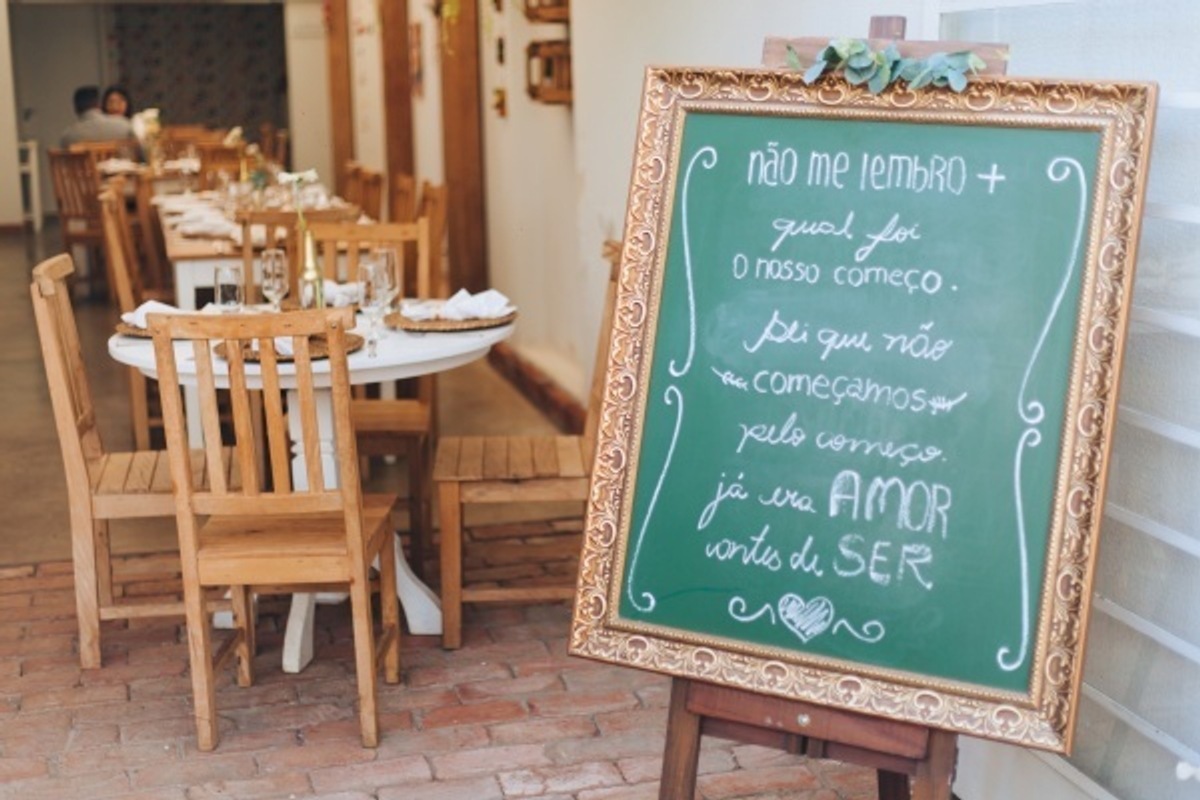 não me lembro +
qual foi
o nosso começo.
Sei que não
começamos
pelo começo.
já era AMOR
antes de SER